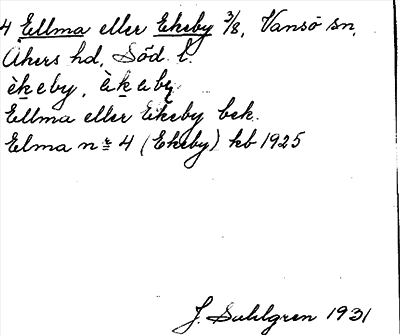 4 Ellma eller Ekeby 3/8, Vansö sn,
Åkers hd, Söd. l.
èkeby, èkeby
Ellma eller Ekeby bek.
Elma nr 4 (Ekeby) kb 1925
J. Sahlgren 1931